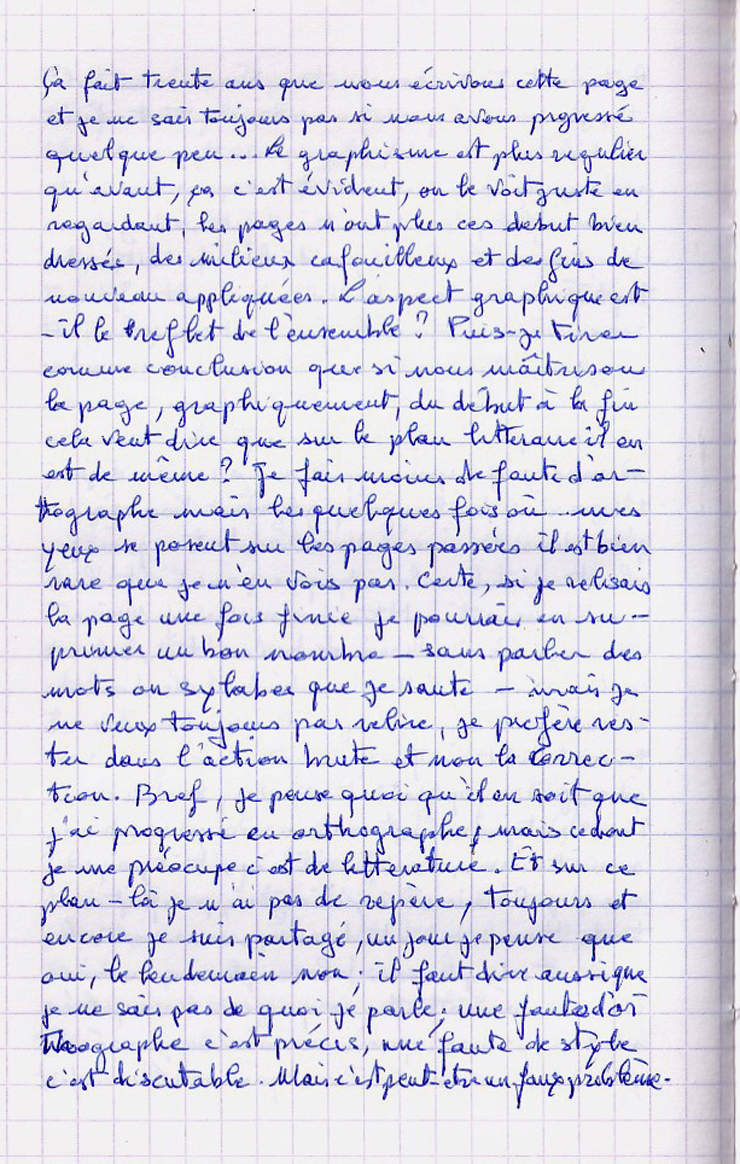 Ça fait trente ans que nous écrivons cette page
et je ne sais toujours pas si nous avons progressé
quelque peu... Le graphisme est plus regulier
qu'avant, ça c'est évident, on le voit juste en
regardant, les pages n'ont plus ces debut bien
dressés, des milieux cafouilleux et des fins de
nouveau appliquées. L'aspect graphique est
-il le reflet de l'ensemble ? Puis-je tirer
comme conclusion que si nous maîtrisons
la page, graphiquement, du début à la fin
cela veut dire que sur le plan litteraire il en
est de même ? Je fais moins de faute d'or-
thographe mais les quelques fois où mes
yeux se posent sur les pages passées il est bien
rare que je n'en vois pas. Certe, si je relisais
la page une fois finie je pourrais en su-
primer un bon nombre - sans parler des
mots ou sylabes que je saute - mais je
ne veux toujours pas relire, je prefère res-
ter dans l'action brute et non la correc-
tion. Bref, je pense quoi qu'il en soit que
j'ai progressé en orthographe, mais ce dont
je me préocupe c'est de litterature. Et sur ce
plan-là je n'ai pas de repère, toujours et
encore je suis partagé, un jour je pense que
oui, le lendemain non ; il faut dire aussi que
je ne sais pas de quoi je parle ; une faute d'or
thographe c'est précis, une faute de style
c'est discutable. Mais c'est peut-etre un faux problème.